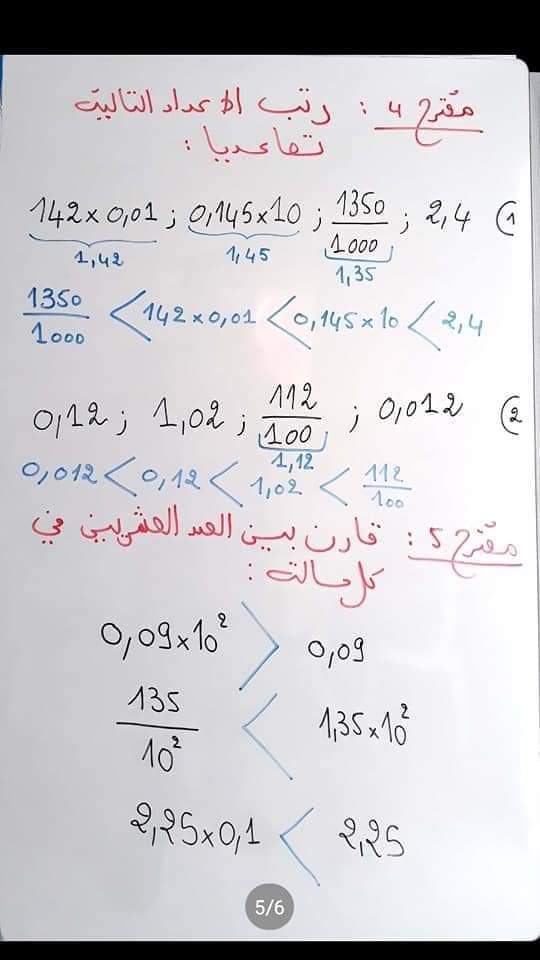 مقترح 4 : رتب الأعداد التالية
تصاعديا :
142 × 0,01 ; 0,145 × 10 ; 1350/1000 ; 2,4 (1
1,42 1,45 1,35
1350/1000 < 142 × 0,01 < 0,145 × 10 < 2,4
0,12 ; 1,02 ; 112/100 ; 0,012 (2
1,12
0,012 < 0,12 < 1,02 < 112/100
مقترح 5 : قارن بين العددين العشريين في
كل حالة :
0,09 × 10² > 0,09
135/10² < 1,35 × 10²
2,25 × 0,1 < 2,25
5/6